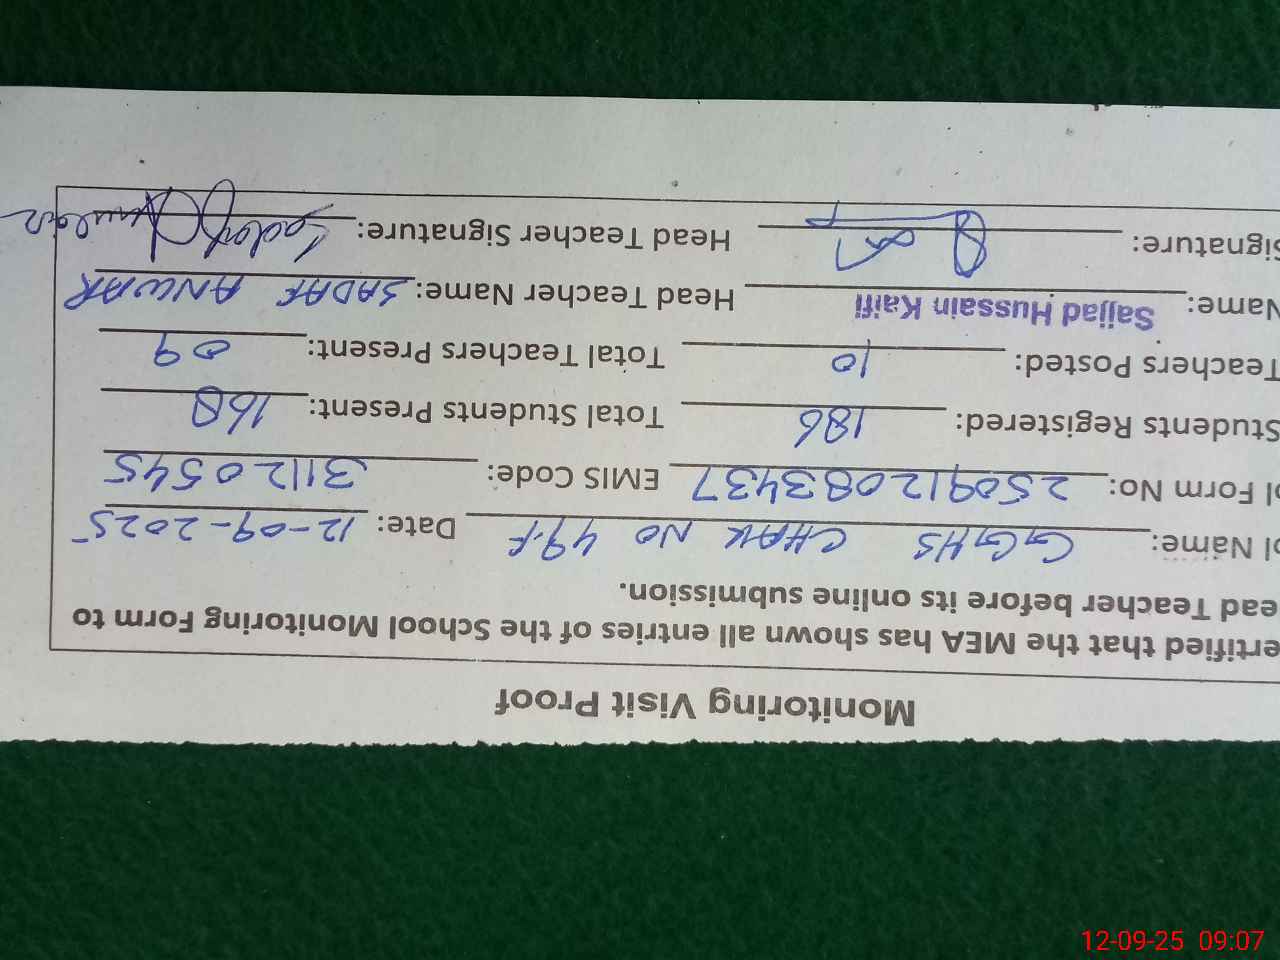 Monitoring Visit Proof
ertified that the MEA has shown all entries of the School Monitoring Form to
ead Teacher before its online submission.
ol Name: GGHS CHAK NO 49.F Date: 12-09-2025
ol Form No: 250912083437 EMIS Code: 31120545
Students Registered: 186 Total Students Present: 168
Teachers Posted: 10 Total Teachers Present: 09
Name: Sajjad Hussain Kaifi Head Teacher Name: SADAF ANWAR
Signature: Head Teacher Signature: Sadaf Anwar
12-09-25 09:07